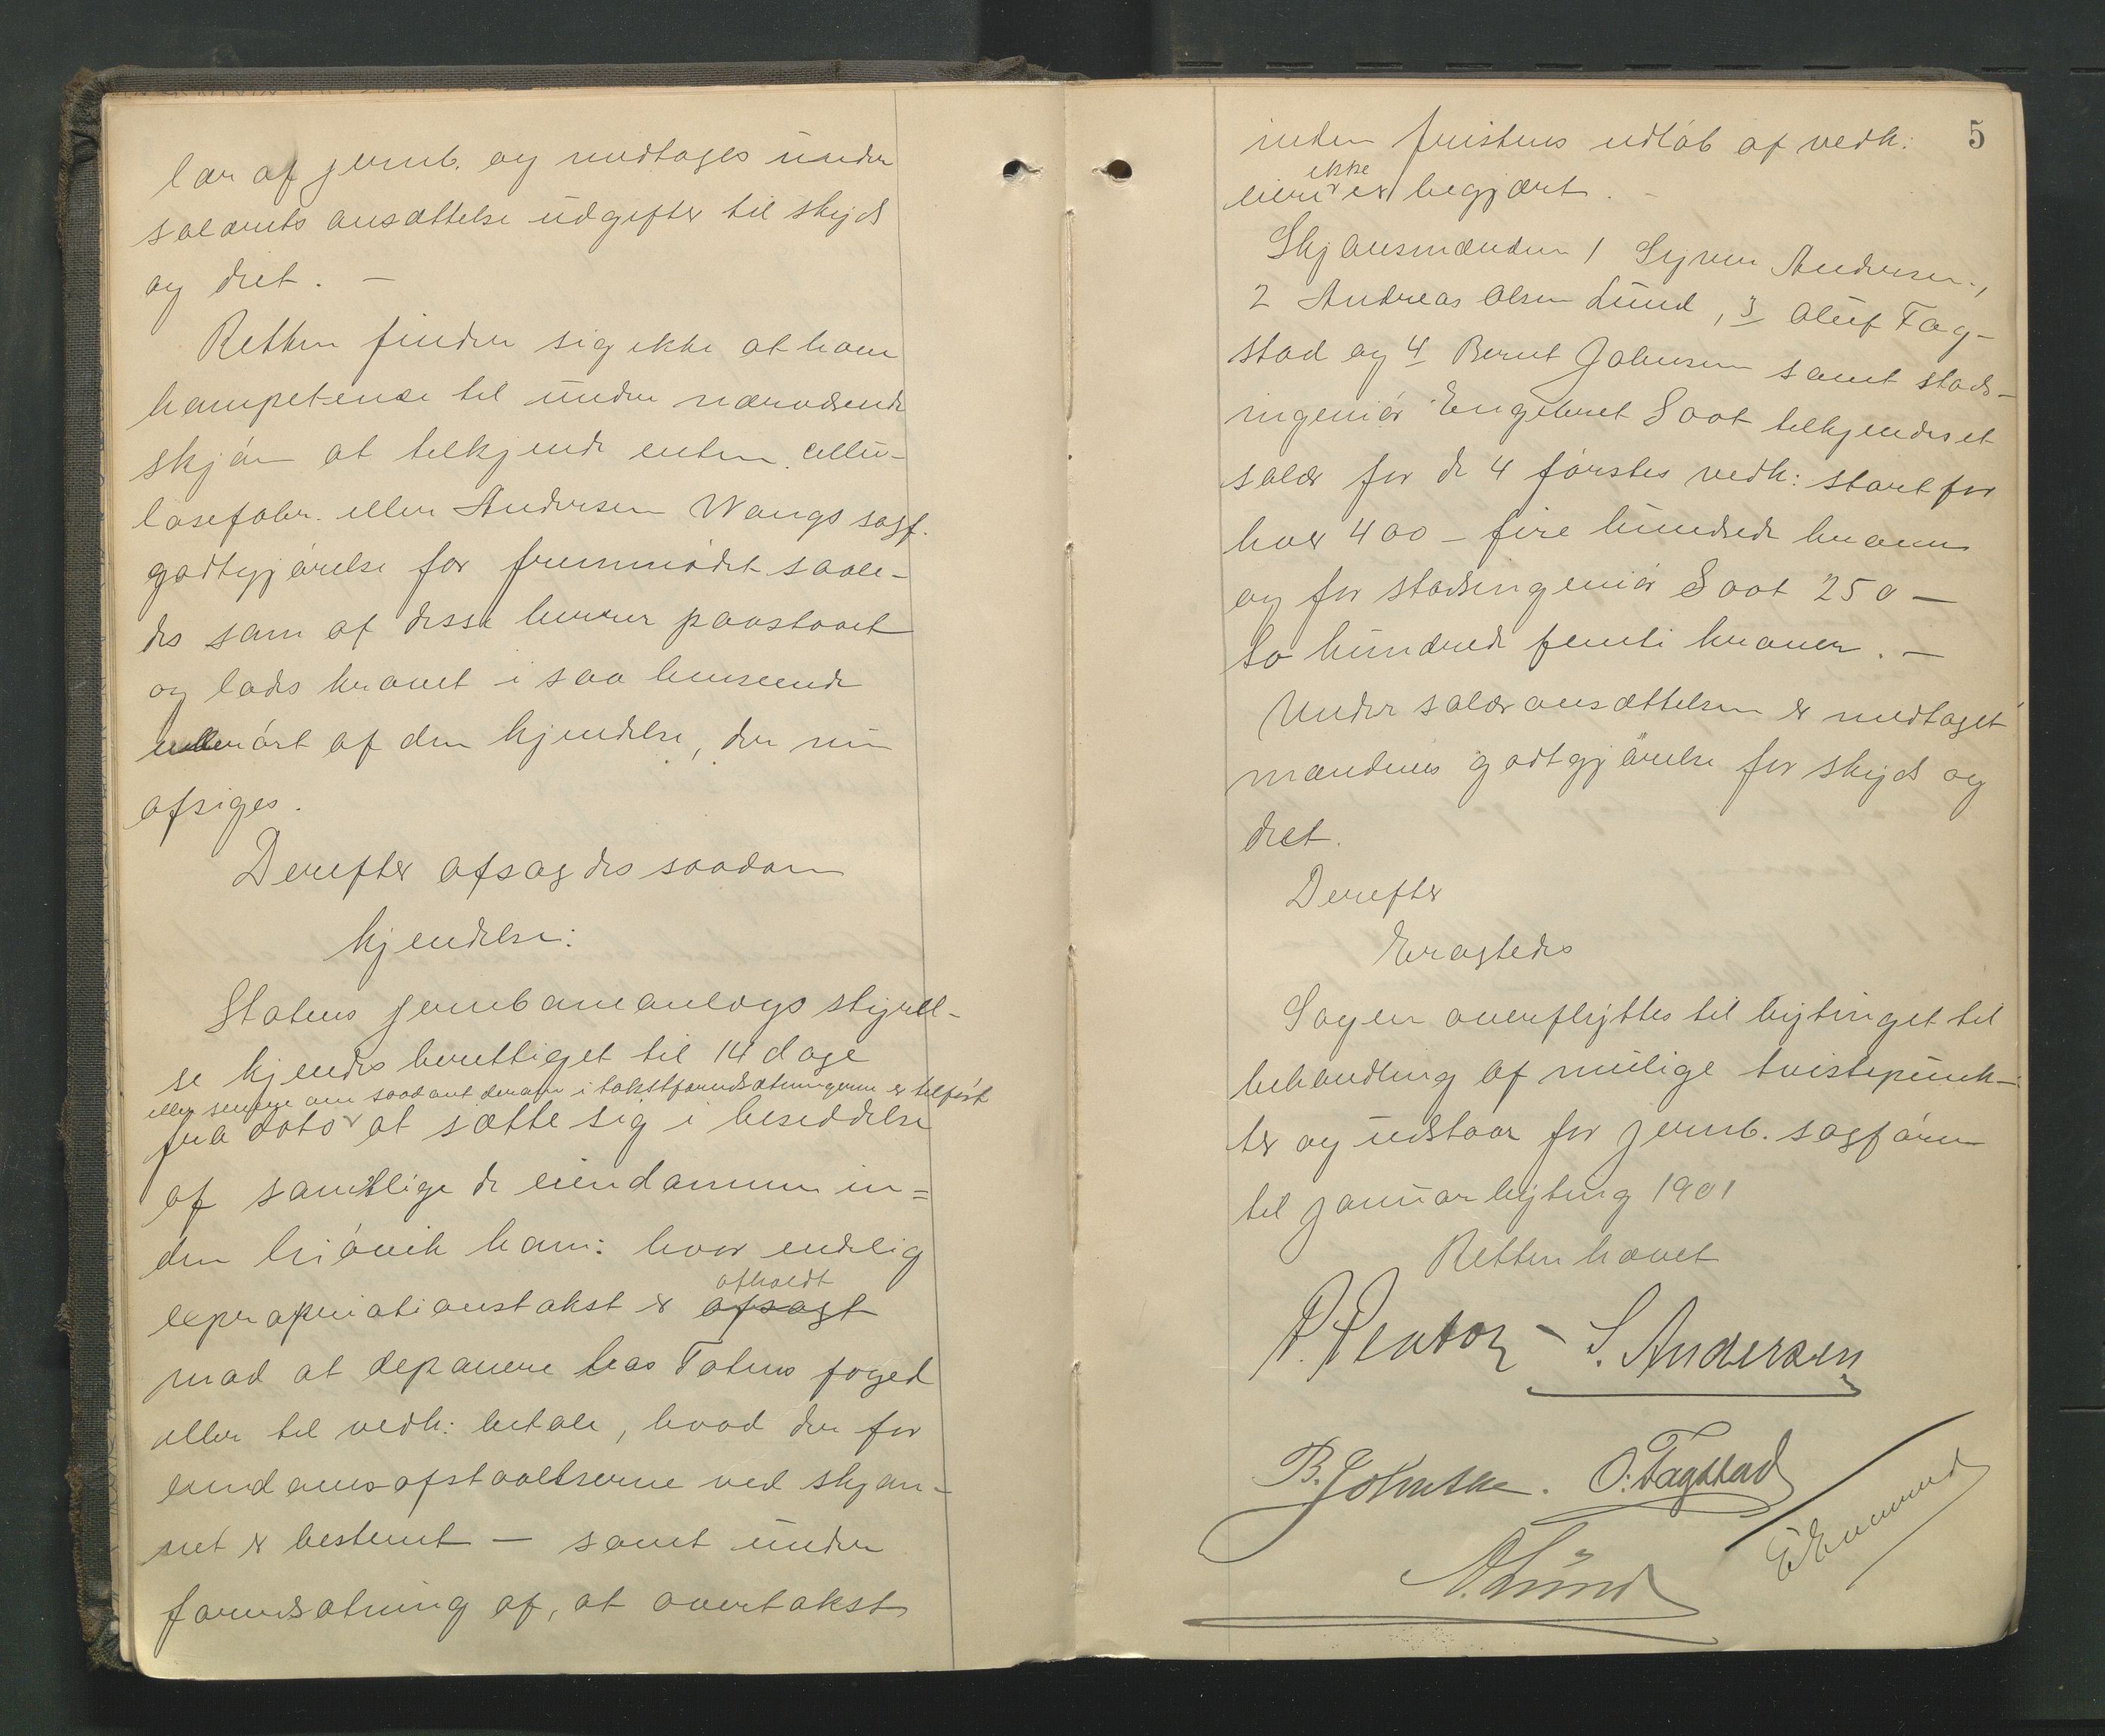 lær af jernb. og medtages under
salærets ansættelse udgifter til skyds
og diet. —
Retten finder sig ikke at have
kompetence til under nærværende
skjøn at tilkjende enten cellu-
losefabr. eller Andersen Wangs sagf.
godtgjørelse for fremmødet saale-
des som af disse herrer paastaaet
og lades kravet i saa henseende
uberørt af den kjendelse, der nu
afsiges.
Derefter afsagdes saadan
kjendelse:
Statens jernbaneanlægs styrel-
se kjendes berettiget til 14 dage
eller senere om saadant derom i takstforudsætningerne er tilført
fra dato at sætte sig i besiddelse
af samtlige de eiendomme in=
den Gjøvik kom: hvor endelig
expropriationstakst er afsagt
afholdt
mod at deponere hos Totens foged
eller til vedk: betale, hvad der for
eiendomsafstaaelserne ved skjøn-
net er bestemt — samt under
forudsætning af, at overtakst
5
inden fristens udløb af vedk:
ikke
eiere er begjært. —
Skjønsmændene 1 Syver Andersen,
2 Andreas Olsen Lund, 3 Oluf Fag-
stad og 4 Bernt Johnsen samt stads-
ingeniør Engebret Soot tilkjendes et
salær for de 4 førstes vedk: stort for
hver 400 – fire hundrede kroner
og for stadsingeniør Soot 250 —
to hundrede femti kroner. —
Under salæransættelsen er medtaget
mændenes godtgjørelse for skyds og
diet.
Derefter
Eragtedes
Sagen overflyttes til bytinget til
behandling af mulige tvistepunk-
ter og udstaar for jernb. sagfører
til januar byting 1901
Retten hævet
S. Andersen
B. Johnsen. O. Fagstad
A. Lund